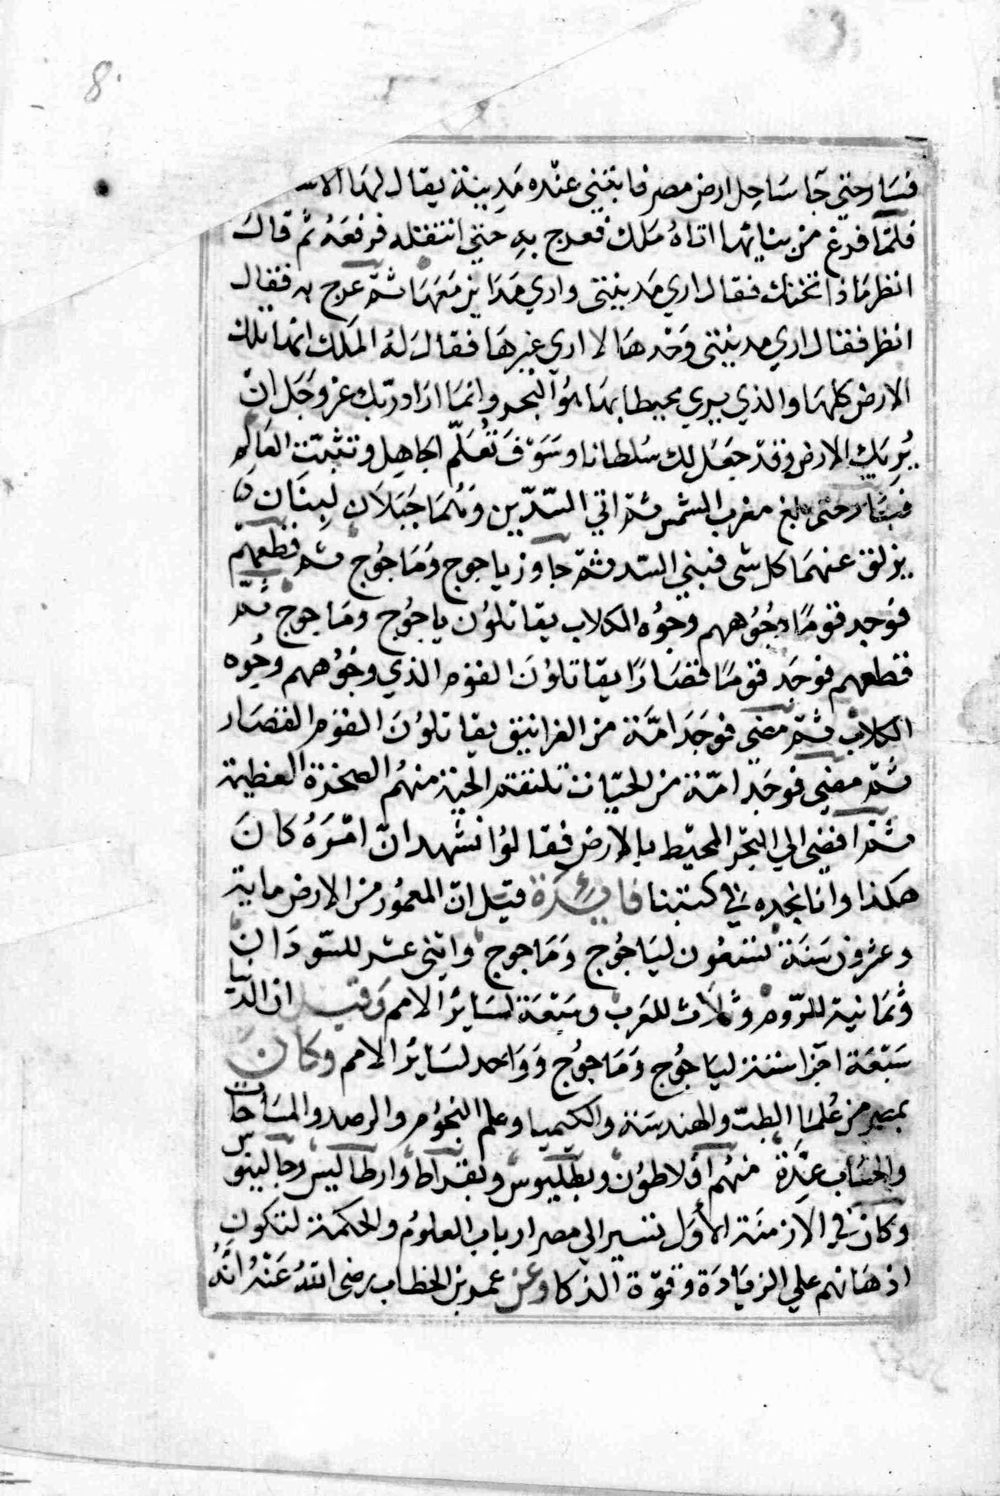 8
فسار حتي جا ساحل ارض مصر فابتني عنده مدينة يقال لها الاس
فلما فرغ من بنائها اتاه ملك فعرج به حتي انتقله فرفعه ثم قال
انظر ماذا تحتك فقال اري مدينتى واري مداين معها ثم عرج به فقال
انظر فقال اري مدينتى وحدها لا اري غيرها فقال له الملك انما تلك
الارض كلها والذي يري محيطا بها هو البحر وانما اراد ربك عز وجل ان
يريك الارض وقد جعل لك سلطانا وسوف تعلم الجاهل وتثبت العالم
فسار حتى بلغ مغرب الشمس ثم اتي السدين وهما جبلان لينان
يزلق عنهما كل شى فبني السد ثم جاوز ياجوج وماجوج ثم قطعهم
فوجد قوما وجوههم وجوه الكلاب يقاتلون ياجوج وماجوج ثم
قطعهم فوجد قوما قصارا يقاتلون القوم الذي وجوههم وجوه
الكلاب ثم مضي فوجد امة من الغرانيق يقاتلون القوم القصار
ثم مضي فوجد امة من الحيات تلتقم الحية منهم الصخرة العظيمة
ثم افضي الي البحر المحيط بالارض فقالوا نشهد ان امره كان
هكذا وانا نجده في كتبنا فايدة قيل ان المعمور من الارض ماية
وعشرون سنة تسعون لياجوج وماجوج واثنى عشر للسودان
وثمانية للروم وثلاث للعرب وسبعة لساير الامم وقيل ان الدنيا
سبعة اجزا ستة لياجوج وماجوج وواحد لساير الامم وكان
بمصر من علما الطب والهندسة والكيميا وعلم النجوم والرصد والمساحات
والحساب عدة منهم افلاطون وبطليوس وبقراط وارطاليس وجالينوس
وكان في الازمنة الأول تسير الي مصر ارباب العلوم والحكمة لتكون
اذهانهم علي الزيادة وقوة الذكا وعن عمر بن الخطاب رضى الله عنه انه